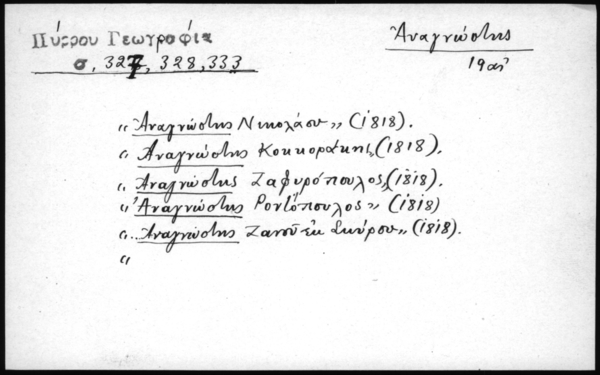 Πύρρου Γεωγραφία
σ. 327, 328, 333
Ἀναγνώστης
19αι
„ Ἀναγνώστης Νικολάου „ (1818).
„ Ἀναγνώστης Κοκκοράκης „ (1818).
„ Ἀναγνώστης Ζαφυρόπουλος „ (1818).
„ Ἀναγνώστης Ροντόπουλος „ (1818)
„ .. Ἀναγνώστης Ζανοῦ ἐκ Σκύρου „ (1818).
„